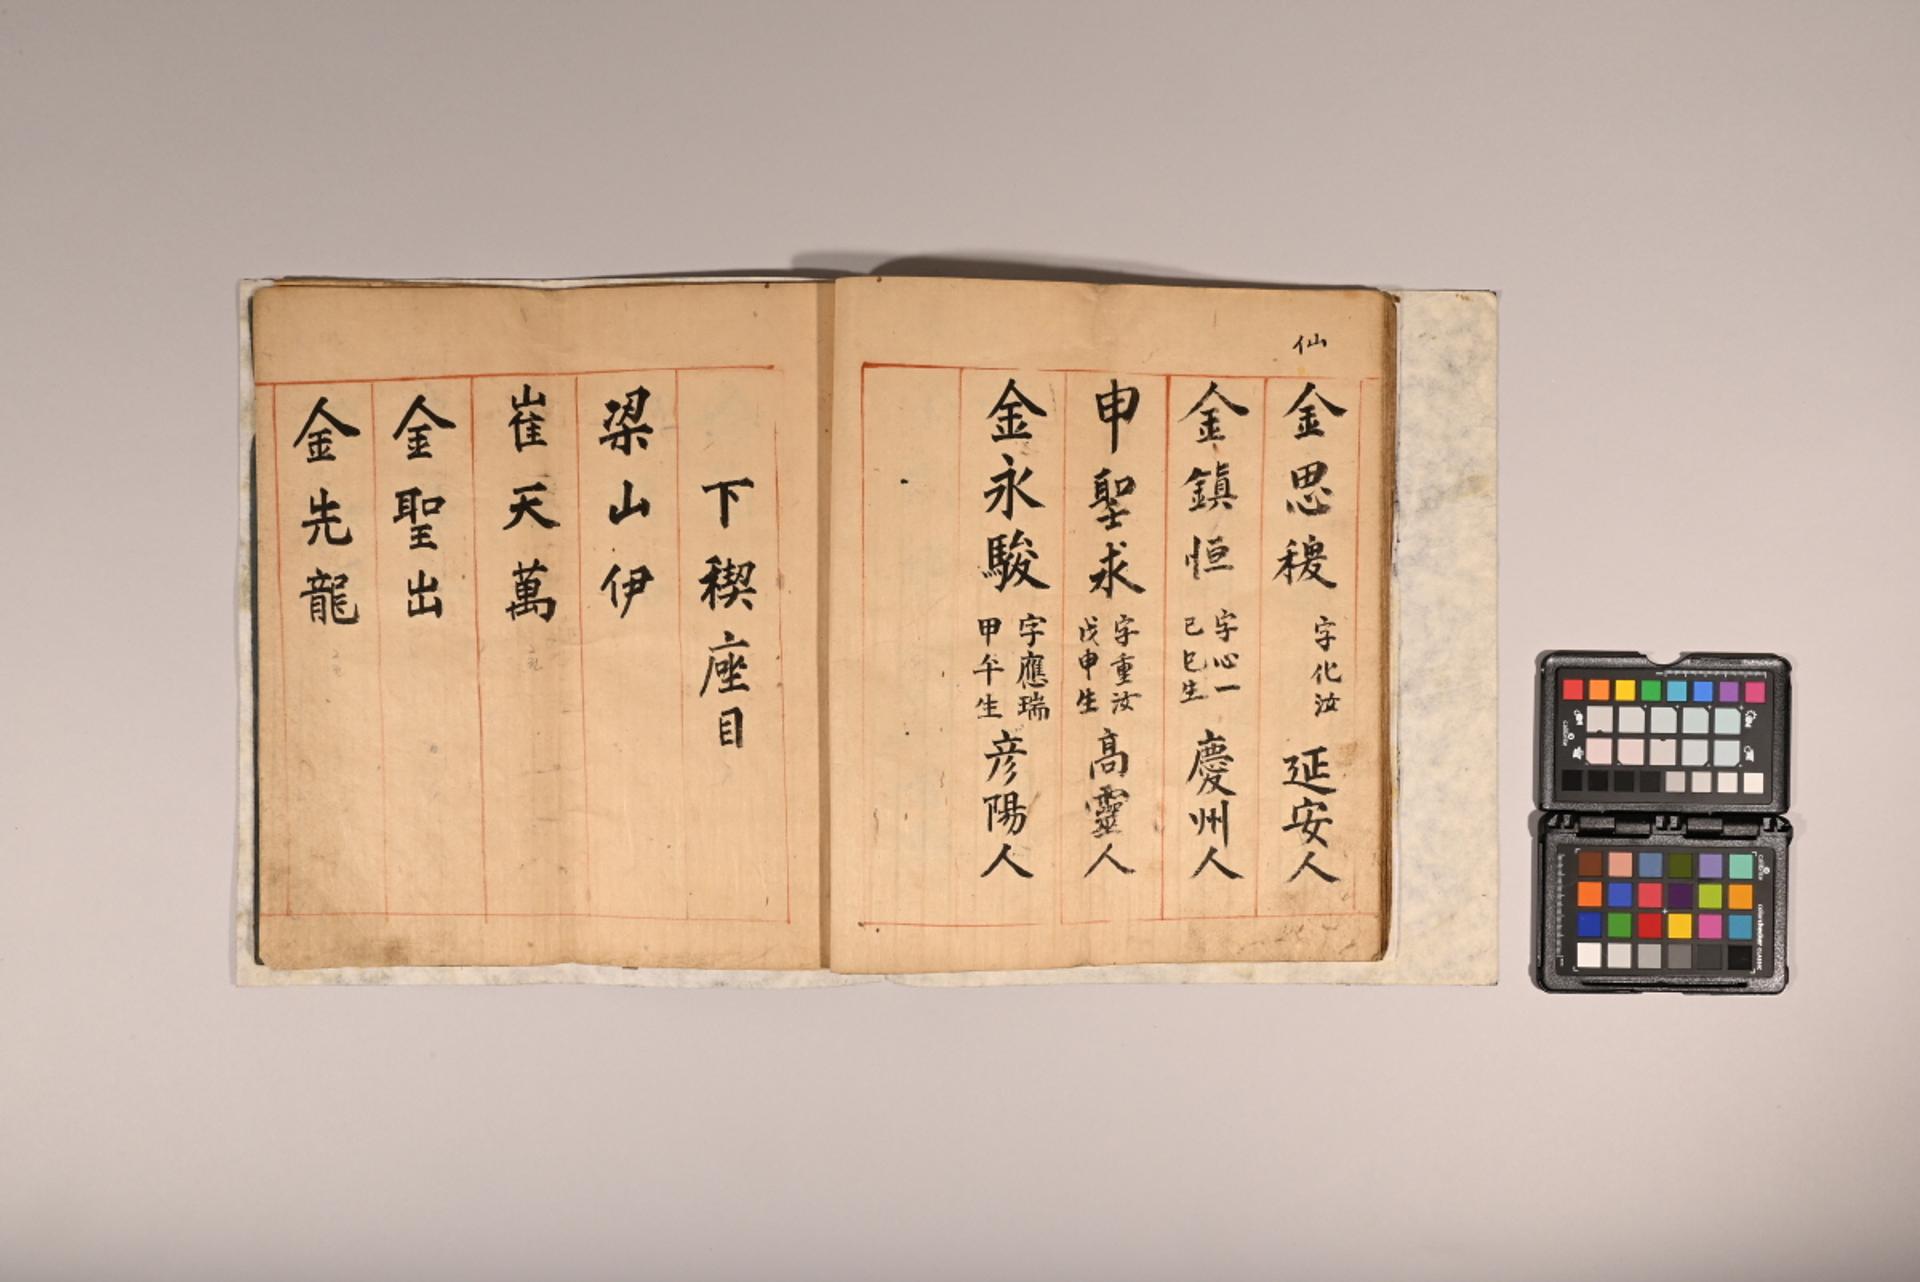 仙
金思稷 字化汝 延安人
金鎮恒 字心一 己巳生 慶州人
申聖求 字重汝 戊申生 高靈人
金永駿 字應瑞 甲午生 彦陽人
下稧座目
梁山伊
崔天萬
金聖出
金先龍